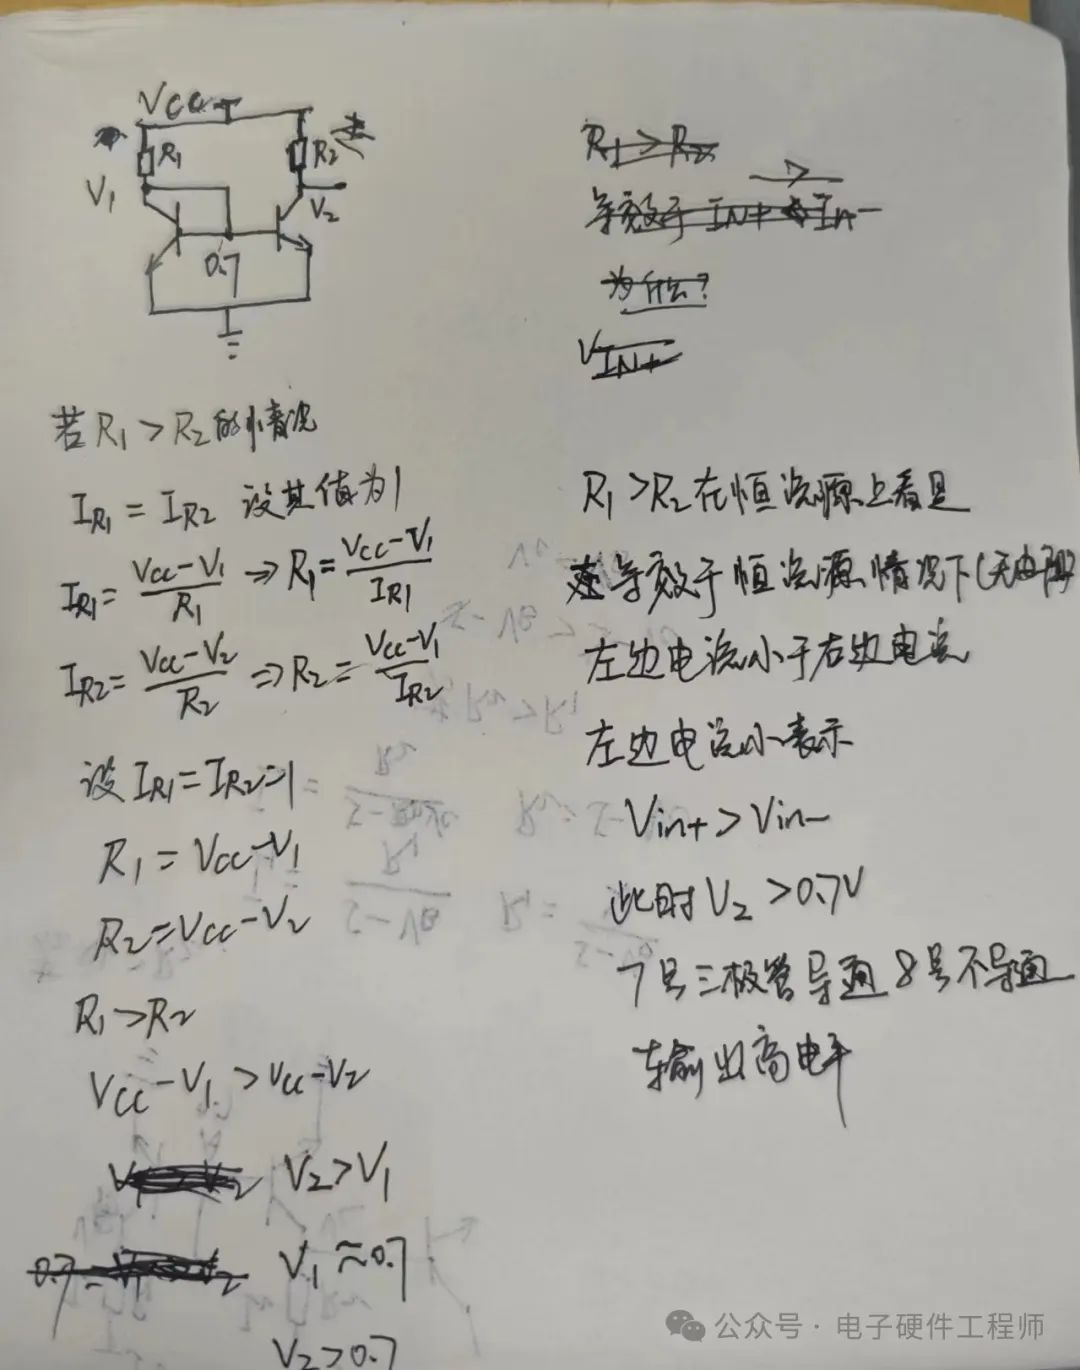 Vcc
R1
R2
V1
V2
0.7
若R1>R2的情况
IR1=IR2 设其值为1
IR1=Vcc-V1/R1 => R1=Vcc-V1/IR1
IR2=Vcc-V2/R2 => R2=Vcc-V1/IR2
设IR1=IR2=1
R1=Vcc-V1
R2=Vcc-V2
R1>R2
Vcc-V1>Vcc-V2
V2>V1
V1≈0.7
V2>0.7
R1>R2
等效于 IN+ IN-
为什么?
VIN+
R1>R2在恒流源上看是
等效于恒流源情况下(无电阻)
左边电流小于右边电流
左边电流小表示
Vin+>Vin-
此时V2>0.7V
7号三极管导通8号不导通
输出高电平
公众号·电子硬件工程师